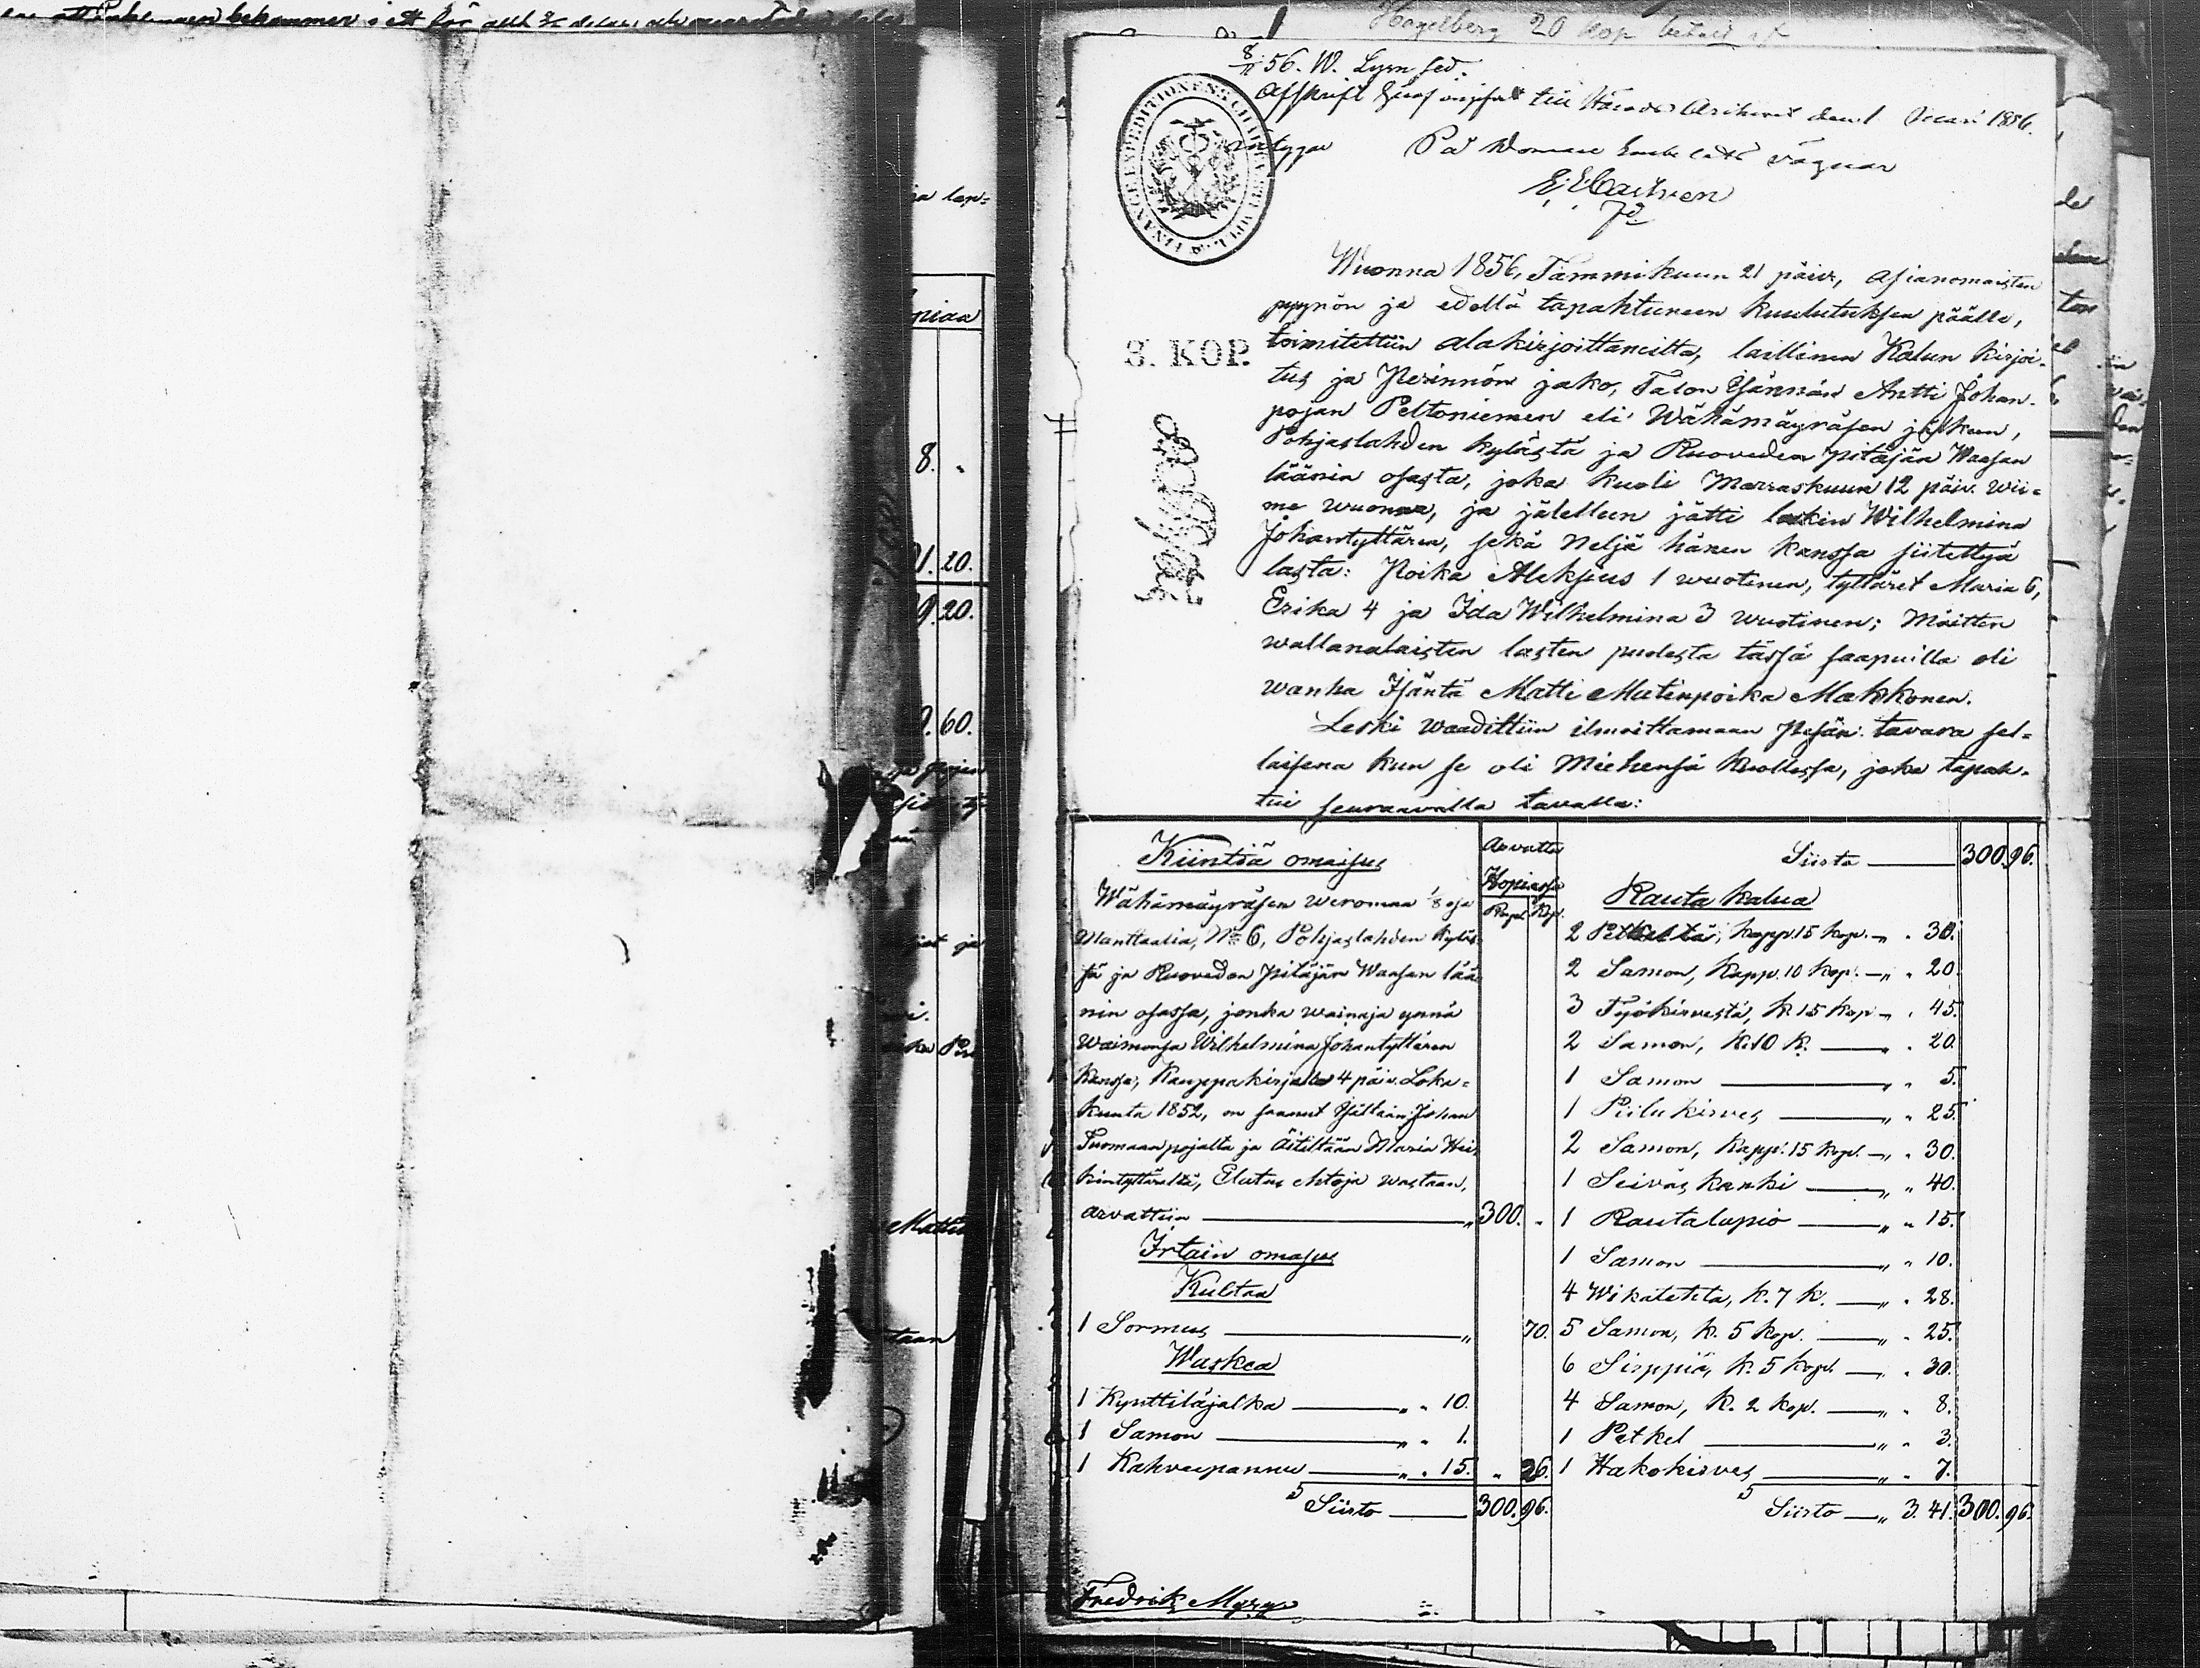 Hagelberg 20 kop betalt
8/11 56. W. Lysn fed.
Afskrift till Härads Arkivet den 1 1856.
intygar På Domare Embetets vägnar
FINANCE EXPEDITIONENS CHARTÆ
3. KOP.
Wuonna 1856, Tammikuun 21 päiv, asianomaisten
pyynön ja edellä tapahtuneen kuulutuksen päälle,
toimitettiin alakirjoittaneilta, laillinen Kalun kirjoi-
tus ja Perinnön jako, Talon Isännän Antti Johan-
pojan Peltoniemen eli Wähämäyräsen jälkeen,
Pohjaslahden kylästä ja Ruoveden pitäjän Waasan
läänin osasta, joka kuoli Marraskuun 12 päiv. wii-
me wuonna, ja jälelleen jätti lesken Wilhelmina
Johantyttären, sekä neljä hänen kanssa siitettyä
lasta: Poika Aleksius 1 wuotinen, tyttäret Maria 6,
Erika 4 ja Ida Wilhelmina 3 wuotinen; Näitten
wallanalaisten lasten puolesta tässä saapuilla oli
wanha Isäntä Matti Matinpoika Makkonen.
Leski waadittiin ilmoittamaan Pesän tavara sel-
laisena kun se oli Miehensä kuollessa, joka tapah-
tui seuraavalla tavalla:
Kiintiä omaisus
Arvattu
Hopiassa
Rupl. Kop.
Wähämäyräsen weromaa 1/8 osa
Manttaalia, No 6, Pohjaslahden kyläs-
sä ja Ruoveden Pitäjän Waasan lää-
nin osassa, jonka wainaja ynnä
waimonsa Wilhelmina Johantyttären
kanssa, Kauppakirjalla 4 päiv. Loka-
kuuta 1852, on saanut Isältään Johan
Tuomaanpojalta ja Äitiltään Maria Hei-
kintyttäreltä, Elatus ehtoja wastaan,
arvattiin — „ 300. "
Irtain omasus
Kultaa
1 Sormus — „ 70.
Waskea
1 Kynttiläjalka — „ " 10.
1 Samon — „ " 1.
1 Kahveepannu — „ " 15. " 26.
Siirto — 300. 96.
Siirto — 300. 96.
Rauta kalua
2 Petkeltä, kapp. 15 kop. — „ " 30.
2 Samon, kapp. 10 kop. — „ " 20.
3 Työkirvestä, k. 15 kop — „ " 45.
2 Samon, k. 10 k. — „ " 20.
1 Samon — „ " 5.
1 Piilukirves — „ " 25.
2 Samon, kapp. 15 kop. — „ " 30.
1 Seiväs kanki — „ " 40.
1 Rautalapio — „ " 15.
1 Samon — „ " 10.
4 Wikatehta, k. 7 k. — „ " 28.
5 Samon, k. 5 kop. — „ " 25.
6 Sirppiä, k. 5 kop. — „ " 30.
4 Samon, k. 2 kop. — „ " 8.
1 Petkel — „ " 3.
1 Hakokirves — „ " 7.
Siirto — „ 3. 41. 300. 96.
Fredrik Myry